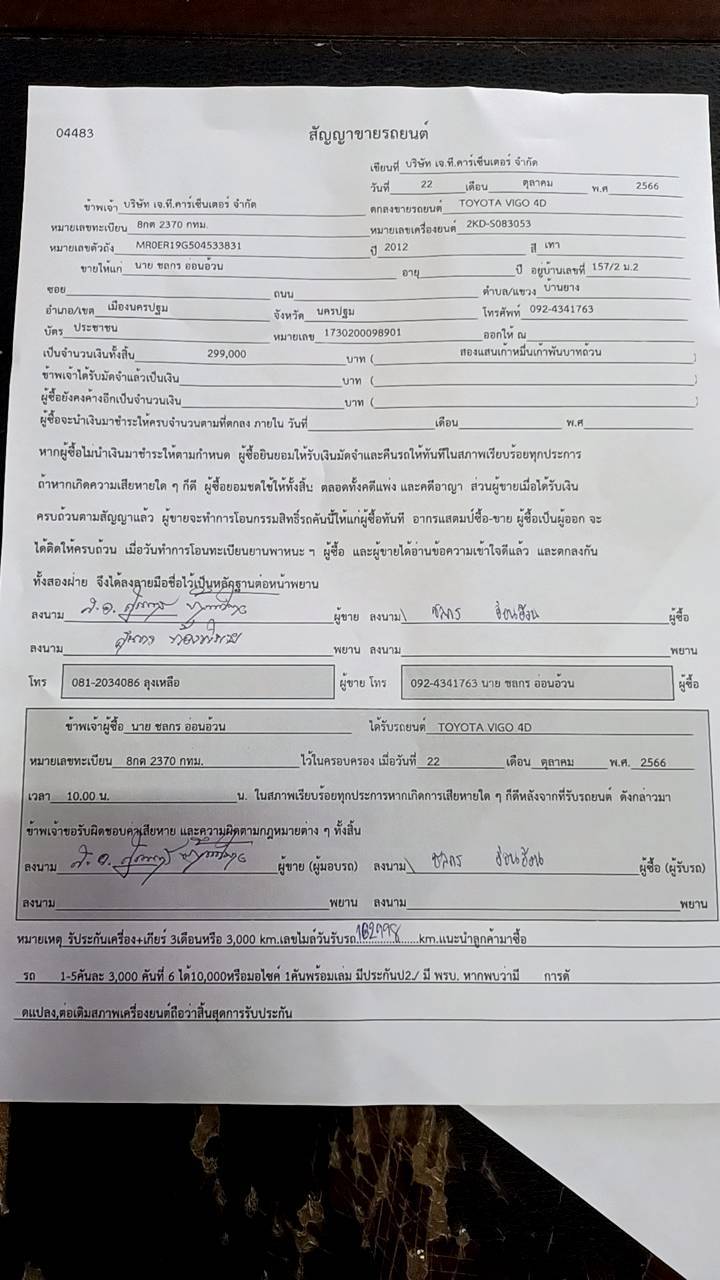 04483
สัญญาขายรถยนต์
เขียนที่ บริษัท เจ.ที.คาร์เซ็นเตอร์ จำกัด
วันที่ 22 เดือน ตุลาคม พ.ศ 2566
ข้าพเจ้า บริษัท เจ.ที.คาร์เซ็นเตอร์ จำกัด ตกลงขายรถยนต์ TOYOTA VIGO 4D
หมายเลขทะเบียน 8กต 2370 กทม. หมายเลขเครื่องยนต์ 2KD-S083053
หมายเลขตัวถัง MR0ER19G504533831 ปี 2012 สี เทา
ขายให้แก่ นาย ชลกร อ่อนอ้วน อายุ ปี อยู่บ้านเลขที่ 157/2 ม.2
ซอย ถนน ตำบล/แขวง บ้านยาง
อำเภอ/เขต เมืองนครปฐม จังหวัด นครปฐม โทรศัพท์ 092-4341763
บัตร ประชาชน หมายเลข 1730200098901 ออกให้ ณ
เป็นจำนวนเงินทั้งสิ้น 299,000 บาท ( สองแสนเก้าหมื่นเก้าพันบาทถ้วน )
ข้าพเจ้าได้รับมัดจำแล้วเป็นเงิน บาท ( )
ผู้ซื้อยังคงค้างอีกเป็นจำนวนเงิน บาท ( )
ผู้ซื้อจะนำเงินมาชำระให้ครบจำนวนตามที่ตกลง ภายใน วันที่ เดือน พ.ศ
หากผู้ซื้อไม่นำเงินมาชำระให้ตามกำหนด ผู้ซื้อยินยอมให้รับเงินมัดจำและคืนรถให้ทันทีในสภาพเรียบร้อยทุกประการ
ถ้าหากเกิดความเสียหายใด ๆ ก็ดี ผู้ซื้อยอมชดใช้ให้ทั้งสิ้น ตลอดทั้งคดีแพ่ง และคดีอาญา ส่วนผู้ขายเมื่อได้รับเงิน
ครบถ้วนตามสัญญาแล้ว ผู้ขายจะทำการโอนกรรมสิทธิ์รถคันนี้ให้แก่ผู้ซื้อทันที อากรแสตมป์ซื้อ-ขาย ผู้ซื้อเป็นผู้ออก จะ
ได้ติดให้ครบถ้วน เมื่อวันทำการโอนทะเบียนยานพาหนะ ฯ ผู้ซื้อ และผู้ขายได้อ่านข้อความเข้าใจดีแล้ว และตกลงกัน
ทั้งสองฝ่าย จึงได้ลงลายมือชื่อไว้เป็นหลักฐานต่อหน้าพยาน
ลงนาม ผู้ขาย ลงนาม ชลกร อ่อนอ้วน ผู้ซื้อ
ลงนาม พยาน ลงนาม พยาน
โทร 081-2034086 ลุงเหลือ ผู้ขาย โทร 092-4341763 นาย ชลกร อ่อนอ้วน ผู้ซื้อ
ข้าพเจ้าผู้ซื้อ นาย ชลกร อ่อนอ้วน ได้รับรถยนต์ TOYOTA VIGO 4D
หมายเลขทะเบียน 8กต 2370 กทม. ไว้ในครอบครอง เมื่อวันที่ 22 เดือน ตุลาคม พ.ศ. 2566
เวลา 10.00 น. น. ในสภาพเรียบร้อยทุกประการหากเกิดการเสียหายใด ๆ ก็ดีหลังจากที่รับรถยนต์ ดังกล่าวมา
ข้าพเจ้าขอรับผิดชอบค่าเสียหาย และความผิดตามกฎหมายต่าง ๆ ทั้งสิ้น
ลงนาม ผู้ขาย (ผู้มอบรถ) ลงนาม ชลกร อ่อนอ้วน ผู้ซื้อ (ผู้รับรถ)
ลงนาม พยาน ลงนาม พยาน
หมายเหตุ รับประกันเครื่อง+เกียร์ 3เดือนหรือ 3,000 km.เลขไมล์วันรับรถ 162798 km.แนะนำลูกค้ามาซื้อ
รถ 1-5คันละ 3,000 คันที่ 6 ได้10,000หรือมอไซค์ 1คันพร้อมเล่ม มีประกันป2./ มี พรบ. หากพบว่ามี การดั
ดแปลง,ต่อเติมสภาพเครื่องยนต์ถือว่าสิ้นสุดการรับประกัน